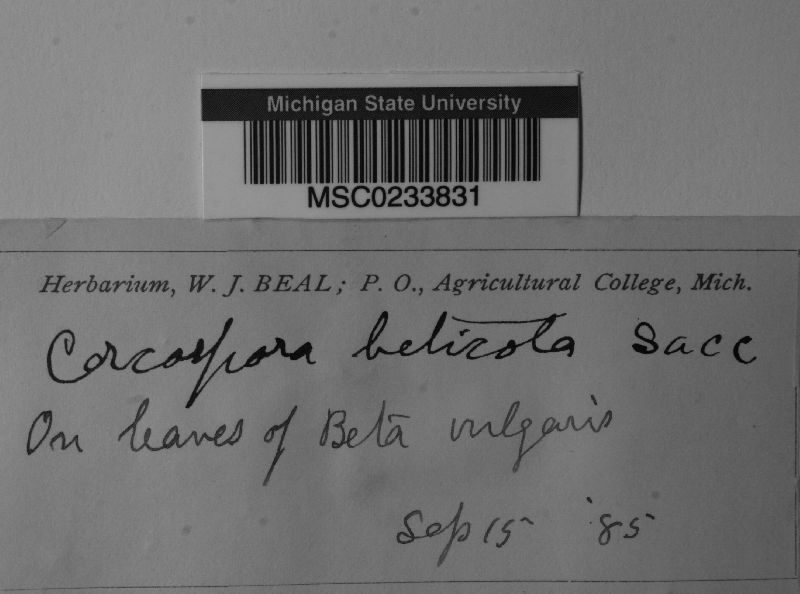 Michigan State University
MSC0233831
Herbarium, W. J. BEAL; P. O., Agricultural College, Mich.
Cercospora beticola Sacc
On leaves of Beta vulgaris
Sep 15 '85